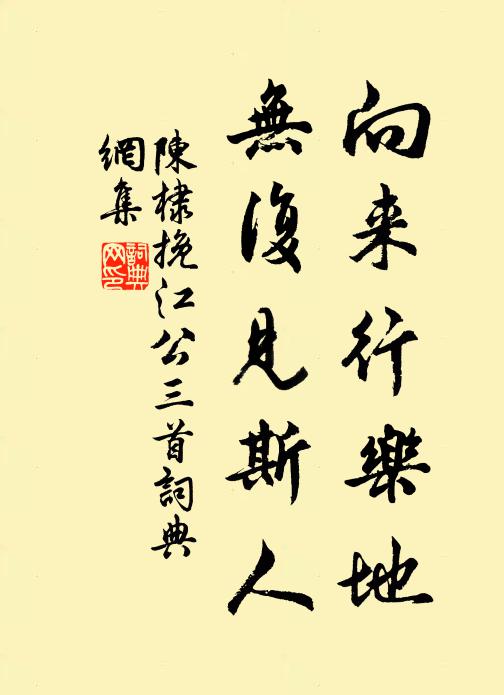 向来行樂地
無復見斯人
陳棣挽江公三首詞典
網集
詞典
网印